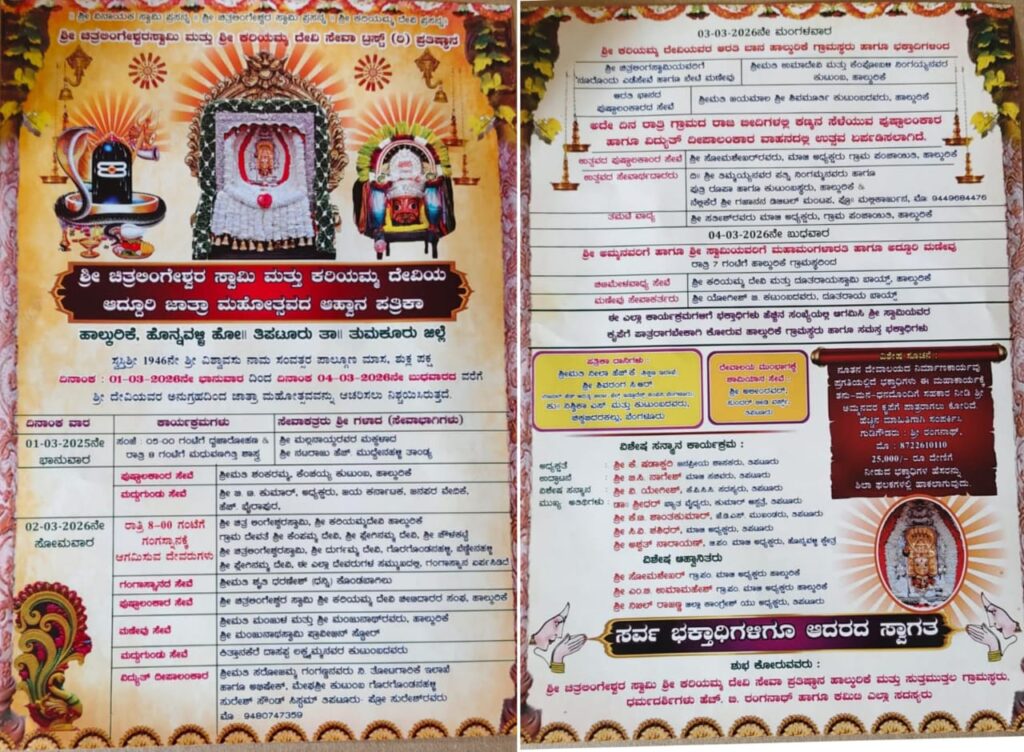 || ಶ್ರೀ ವಿನಾಯಕ ಸ್ವಾಮಿ ಪ್ರಸನ್ನ || ಶ್ರೀ ಚಿತ್ರಲಿಂಗೇಶ್ವರ ಸ್ವಾಮಿ ಪ್ರಸನ್ನ || ಶ್ರೀ ಕರಿಯಮ್ಮ ದೇವಿ ಪ್ರಸನ್ನ ||
ಶ್ರೀ ಚಿತ್ರಲಿಂಗೇಶ್ವರಸ್ವಾಮಿ ಮತ್ತು ಶ್ರೀ ಕರಿಯಮ್ಮ ದೇವಿ ಸೇವಾ ಟ್ರಸ್ಟ್ (ರಿ) ಪ್ರತಿಷ್ಠಾನ
ಶ್ರೀ ಚಿತ್ರಲಿಂಗೇಶ್ವರ ಸ್ವಾಮಿ ಮತ್ತು ಕರಿಯಮ್ಮ ದೇವಿಯ
ಅದ್ದೂರಿ ಜಾತ್ರಾ ಮಹೋತ್ಸವದ ಆಹ್ವಾನ ಪತ್ರಿಕಾ
ಹಾಲ್ಕುರಿಕೆ, ಹೊನ್ನವಳ್ಳಿ ಹೋ|| ತಿಪಟೂರು ತಾ|| ತುಮಕೂರು ಜಿಲ್ಲೆ
ಸ್ವಸ್ತಿಶ್ರೀ 1946ನೇ ಶ್ರೀ ವಿಶ್ವಾವಸು ನಾಮ ಸಂವತ್ಸರ ಪಾಲ್ಗೂಣ ಮಾಸ, ಶುಕ್ಲ ಪಕ್ಷ
ದಿನಾಂಕ : 01-03-2026ನೇ ಭಾನುವಾರ ದಿಂದ ದಿನಾಂಕ 04-03-2026ನೇ ಬುಧವಾರದ ವರೆಗೆ
ಶ್ರೀ ದೇವಿಯವರ ಅನುಗ್ರಹದಿಂದ ಜಾತ್ರಾ ಮಹೋತ್ಸವವನ್ನು ಆಚರಿಸಲು ನಿಶ್ಚಯಿಸಿರುತ್ತದೆ.
ದಿನಾಂಕ ವಾರ ಕಾರ್ಯಕ್ರಮಗಳು ಸೇವಾಕರ್ತರು ಶ್ರೀ ಗಳಾದ (ಸೇವಾಭಾಗಿಗಳು)
01-03-2025ನೇ ಭಾನುವಾರ
ಸಂಜೆ : 05-00 ಗಂಟೆಗೆ ಧ್ವಜಾರೋಹಣ &
ರಾತ್ರಿ 8 ಗಂಟೆಗೆ ಮಧುವಣಗಿತ್ತಿ ಶಾಸ್ತ್ರ
ಶ್ರೀ ಮಲ್ಲನಾಯ್ಕರವರ ಮಕ್ಕಳಾದ
ಶ್ರೀ ನಟರಾಜು ಹೆಚ್ ಮುದ್ದೇನಹಳ್ಳಿ ತಾಂಡ್ಯ
ಪುಷ್ಪಾಲಂಕಾರ ಸೇವೆ ಶ್ರೀಮತಿ ಶಂಕರಮ್ಮ ಕೆಂಚಯ್ಯ ಕುಟುಂಬ, ಹಾಲ್ಕುರಿಕೆ
ಮದ್ದುಗುಂಡು ಸೇವೆ ಶ್ರೀ ಬಿ. ಟಿ. ಕುಮಾರ್, ಅಧ್ಯಕ್ಷರು, ಜಯ ಕರ್ನಾಟಕ, ಜನಪರ ವೇದಿಕೆ,
ಹೆಚ್. ಭೈರಾಪುರ,
02-03-2026ನೇ ಸೋಮವಾರ
ರಾತ್ರಿ 8-00 ಗಂಟೆಗೆ
ಗಂಗಾಸ್ನಾನಕ್ಕೆ
ಆಗಮಿಸುವ ದೇವರುಗಳು
ಶ್ರೀ ಚಿತ್ರ ಲಿಂಗೇಶ್ವರಸ್ವಾಮಿ, ಶ್ರೀ ಕರಿಯಮ್ಮದೇವಿ ಹಾಲ್ಕುರಿಕೆ
ಗ್ರಾಮ ದೇವತೆ ಶ್ರೀ ಕೆಂಪಮ್ಮ ದೇವಿ, ಶ್ರೀ ಪ್ಲೇಗಿನಮ್ಮ ದೇವಿ, ಶ್ರೀ ಚೌಳಕಟ್ಟೆ
ಶ್ರೀ ಚಿತ್ರಲಿಂಗೇಶ್ವರಸ್ವಾಮಿ, ಶ್ರೀ ದುರ್ಗಮ್ಮ ದೇವಿ, ಗೊರಗೊಂಡನಹಳ್ಳಿ, ಬೆಣ್ಣೇನಹಳ್ಳಿ
ಶ್ರೀ ಪ್ಲೇಗಿನಮ್ಮ ದೇವಿ, ಈ ಎಲ್ಲಾ ದೇವರುಗಳ ಸಮ್ಮುಖದಲ್ಲಿ, ಗಂಗಾಸ್ನಾನ ಏರ್ಪಡಿಸಿದೆ
ಗಂಗಾಸ್ನಾನದ ಸೇವೆ ಶ್ರೀಮತಿ ಶೃತಿ ಧರಣೇಶ್ (ಧನ್ನಿ) ಕೊಂಡಬಾಗಿಲು
ಪುಷ್ಪಾಲಂಕಾರ ಸೇವೆ ಶ್ರೀ ಚಿತ್ರಲಿಂಗೇಶ್ವರ ಸ್ವಾಮಿ ಶ್ರೀ ಕರಿಯಮ್ಮ ದೇವಿ ಬೀಡಿದಾರರ ಸಂಘ, ಹಾಲ್ಕುರಿಕೆ
ಮಣೇವು ಸೇವೆ ಶ್ರೀಮತಿ ಮಂಜುಳ ಮತ್ತು ಶ್ರೀ ಮಂಜುನಾಥ್‌ರವರು, ಹಾಲ್ಕುರಿಕೆ
ಶ್ರೀ ಮಂಜುನಾಥಸ್ವಾಮಿ ಪ್ರಾವಿಜನ್ ಸ್ಟೋರ್
ಮದ್ದುಗುಂಡು ಸೇವೆ ಕಿತ್ತಾನಕೆರೆ ದಾಸಪ್ಪ ಲಕ್ಷ್ಮಮ್ಮನವರ ಕುಟುಂಬದವರು
ವಿದ್ಯುತ್ ದೀಪಾಲಂಕಾರ ಶ್ರೀಮತಿ ಸರೋಜಮ್ಮ ಗಂಗಣ್ಣನವರು ನಿ. ತೋಟಗಾರಿಕೆ ಇಲಾಖೆ
ಹಾಗೂ ಅಭಿಷೇಕ್, ಮೇಘಶ್ರೀ ಕುಟುಂಬ ಗೊರಗೊಂಡನಹಳ್ಳಿ
ಸುರೇಶ್ ಸೌಂಡ್ ಸಿಸ್ಟಮ್ ತಿಪಟೂರು- ಪ್ರೋ ಸುರೇಶ್‌ರವರು
ಮೊ 9480747359
03-03-2026ನೇ ಮಂಗಳವಾರ
ಶ್ರೀ ಕರಿಯಮ್ಮ ದೇವಿಯವರ ಆರತಿ ಬಾನ ಹಾಲ್ಕುರಿಕೆ ಗ್ರಾಮಸ್ಥರು ಹಾಗೂ ಭಕ್ತಾಧಿಗಳಿಂದ
ಶ್ರೀ ಚಿತ್ರಲಿಂಗಸ್ವಾಮಿಯವರಿಗೆ
ನೂರೊಂದು ಎಡೆಸೇವೆ ಹಾಗೂ ಬೇಟೆ ಮಣೇವು
ಶ್ರೀಮತಿ ಉಮಾದೇವಿ ಮತ್ತು ಕೆಂಪೋಬಳ ನಿಂಗಯ್ಯನವರ
ಕುಟುಂಬ, ಹಾಲ್ಕುರಿಕೆ
ಆರತಿ ಭಾನದ
ಪುಷ್ಪಾಲಂಕಾರದ ಸೇವೆ
ಶ್ರೀಮತಿ ಜಯಮಾಲ ಶ್ರೀ ಶಿವಮೂರ್ತಿ ಕುಟುಂಬದವರು, ಹಾಲ್ಕುರಿಕೆ
ಅದೇ ದಿನ ರಾತ್ರಿ ಗ್ರಾಮದ ರಾಜ ಬೀದಿಗಳಲ್ಲಿ ಕಣ್ಮನ ಸೆಳೆಯುವ ಪುಷ್ಪಾಲಂಕಾರ
ಹಾಗೂ ವಿದ್ಯುತ್ ದೀಪಾಲಂಕಾರ ವಾಹನದಲ್ಲಿ ಉತ್ಸವ ಏರ್ಪಡಿಸಲಾಗಿದೆ.
ಉತ್ಸವದ ಪುಷ್ಪಾಲಂಕಾರ ಸೇವೆ ಶ್ರೀ ಸೋಮಶೇಖರ್‌ರವರು, ಮಾಜಿ ಅಧ್ಯಕ್ಷರು ಗ್ರಾಮ ಪಂಚಾಯಿತಿ, ಹಾಲ್ಕುರಿಕೆ
ಉತ್ಸವದ ಸೇವಾರ್ಥದಾರರು ದಿ|| ಶ್ರೀ ತಿಮ್ಮಯ್ಯನವರ ಪತ್ನಿ ನಿಂಗಮ್ಮನವರು ಹಾಗೂ
ಪುತ್ರಿ ರೂಪಾ ಹಾಗೂ ಕುಟುಂಬಸ್ಥರು, ಹಾಲ್ಕುರಿಕೆ &
ನೆಲ್ಲಿಕೆರೆ ಶ್ರೀ ಗಜಾನನ ಡಿಜಿಟಲ್ ಮಂಟಪ, ಪ್ರೋ: ಮಲ್ಲಿಕಾರ್ಜುನ, ಮೊ: 9449684476
ತಮಟೆ ವಾದ್ಯ ಶ್ರೀ ಸತೀಶ್‌ರವರು ಮಾಜಿ ಅಧ್ಯಕ್ಷರು, ಗ್ರಾಮ ಪಂಚಾಯಿತಿ, ಹಾಲ್ಕುರಿಕೆ
04-03-2026ನೇ ಬುಧವಾರ
ಶ್ರೀ ಅಮ್ಮನವರಿಗೆ ಹಾಗೂ ಶ್ರೀ ಸ್ವಾಮಿಯವರಿಗೆ ಮಹಾಮಂಗಳಾರತಿ ಹಾಗೂ ಅದ್ದೂರಿ ಮಣೇವು
ರಾತ್ರಿ 7 ಗಂಟೆಗೆ ಹಾಲ್ಕುರಿಕೆ ಗ್ರಾಮಸ್ಥರಿಂದ
ಚಿಟಿಮೇಳವಾಧ್ಯ ಸೇವೆ ಶ್ರೀ ಕರಿಯಮ್ಮ ದೇವಿ ಮತ್ತು ದೂತರಾಯಸ್ವಾಮಿ ಬಾಯ್ಸ್, ಹಾಲ್ಕುರಿಕೆ
ಮಣೇವು ಸೇವಾಕರ್ತರು ಶ್ರೀ ಯೋಗೀಶ್ ಬಿ. ಕುಟುಂಬದವರು, ದೂತರಾಯ ಬಾಯ್ಸ್
ಈ ಎಲ್ಲಾ ಕಾರ್ಯಕ್ರಮಗಳಿಗೆ ಭಕ್ತಾಧಿಗಳು ಹೆಚ್ಚಿನ ಸಂಖ್ಯೆಯಲ್ಲಿ ಆಗಮಿಸಿ ಶ್ರೀ ಸ್ವಾಮಿಯವರ
ಕೃಪೆಗೆ ಪಾತ್ರರಾಗಬೇಕಾಗಿ ಕೋರುವ ಹಾಲ್ಕುರಿಕೆ ಗ್ರಾಮಸ್ಥರು ಹಾಗೂ ಸಮಸ್ತ ಭಕ್ತಾಧಿಗಳು
ಪತ್ರಿಕಾ ದಾನಿಗಳು :
ಶ್ರೀಮತಿ ಲೀಲಾ ಹೆಚ್.ಕೆ.
ಶ್ರೀ ಶಿವರಂಗ ಸಿ.ಆರ್
ಕು|| ನಿಶ್ಚಿಕಾ ಎಸ್ ಮತ್ತು ಕುಟುಂಬದವರು,
ಚಿಕ್ಕಬಿದರಕಲ್ಲು, ಬೆಂಗಳೂರು
ದೇವಾಲಯ ಮುಂಭಾಗಕ್ಕೆ
ಶಾಮಿಯಾನ ಸೇವೆ :
ತಿಪಟೂರು
ವಿಶೇಷ ಸೂಚನೆ :
ನೂತನ ದೇವಾಲಯದ ನಿರ್ಮಾಣಕಾರ್ಯವು
ಪ್ರಗತಿಯಲ್ಲಿದೆ ಭಕ್ತಾಧಿಗಳು ಈ ಮಹಾಕಾರ್ಯಕ್ಕೆ
ತನು-ಮನ-ಧನದೊಂದಿಗೆ ಸಹಕಾರ ನೀಡಿ ಶ್ರೀ
ಅಮ್ಮನವರ ಕೃಪೆಗೆ ಪಾತ್ರರಾಗಲು ಕೋರಿದೆ.
ಹೆಚ್ಚಿನ ಮಾಹಿತಿಗಾಗಿ ಸಂಪರ್ಕಿಸಿ
ಗುಡಿಗೌಡರು : ಶ್ರೀ ರಂಗನಾಥ್.
ಮೊ : 8722610110
25,000/- ರೂ ದೇಣಿಗೆ
ನೀಡುವ ಭಕ್ತಾಧಿಗಳ ಹೆಸರನ್ನು
ಶಿಲಾ ಫಲಕಗಳಲ್ಲಿ ಹಾಕಲಾಗುವುದು.
ವಿಶೇಷ ಸನ್ಮಾನ ಕಾರ್ಯಕ್ರಮ :
ಅಧ್ಯಕ್ಷತೆ : ಶ್ರೀ ಕೆ. ಷಡಾಕ್ಷರಿ ಜನಪ್ರಿಯ ಶಾಸಕರು, ತಿಪಟೂರು
ಉದ್ಘಾಟನೆ : ಶ್ರೀ ಬಿ.ಸಿ. ನಾಗೇಶ್ ಮಾಜಿ ಸಚಿವರು, ತಿಪಟೂರು
ವಿಶೇಷ ಸನ್ಮಾನ : ಶ್ರೀ ವಿ. ಯೋಗೇಶ್, ಕೆ.ಪಿ.ಸಿ.ಸಿ ಸದಸ್ಯರು, ತಿಪಟೂರು
ಮುಖ್ಯ ಅತಿಥಿಗಳು : ಡಾ|| ಶ್ರೀಧರ್ ಖ್ಯಾತ ವೈದ್ಯರು, ಕುಮಾರ್ ಆಸ್ಪತ್ರೆ, ತಿಪಟೂರು
ಶ್ರೀ ಕೆ.ಟಿ. ಶಾಂತಕುಮಾರ್, ಜೆ.ಡಿ.ಎಸ್ ಮುಖಂಡರು, ತಿಪಟೂರು
ಶ್ರೀ ಸಿ.ವಿ. ಶಶಿಧರ್, ಮಾಜಿ ಅಧ್ಯಕ್ಷರು, ತಿಪಟೂರು
ಶ್ರೀ ಅಶ್ವತ್ ನಾರಾಯಣ್, ಜಿ.ಪಂ. ಮಾಜಿ ಅಧ್ಯಕ್ಷರು, ಹೊನ್ನವಳ್ಳಿ ಕ್ಷೇತ್ರ
ವಿಶೇಷ ಆಹ್ವಾನಿತರು
ಶ್ರೀ ಸೋಮಶೇಖರ್ ಗ್ರಾ.ಪಂ. ಮಾಜಿ ಅಧ್ಯಕ್ಷರು ಹಾಲ್ಕುರಿಕೆ
ಶ್ರೀ ಎಂ.ಬಿ. ಉಮಾಮಹೇಶ್ ಗ್ರಾ.ಪಂ. ಮಾಜಿ ಅಧ್ಯಕ್ಷರು ಹಾಲ್ಕುರಿಕೆ
ಶ್ರೀ ನಿಖಿಲ್ ರಾಜಣ್ಣ ಜಿಲ್ಲಾ ಕಾಂಗ್ರೇಸ್ ಯು ಅಧ್ಯಕ್ಷರು, ತಿಪಟೂರು
ಸರ್ವ ಭಕ್ತಾಧಿಗಳಿಗೂ ಆದರದ ಸ್ವಾಗತ
ಶುಭ ಕೋರುವವರು :
ಶ್ರೀ ಚಿತ್ರಲಿಂಗೇಶ್ವರ ಸ್ವಾಮಿ ಶ್ರೀ ಕರಿಯಮ್ಮ ದೇವಿ ಸೇವಾ ಪ್ರತಿಷ್ಠಾನ ಹಾಲ್ಕುರಿಕೆ ಮತ್ತು ಸುತ್ತಮುತ್ತಲ ಗ್ರಾಮಸ್ಥರು,
ಧರ್ಮದರ್ಶಿಗಳು ಹೆಚ್. ಬಿ. ರಂಗನಾಥ್ ಹಾಗೂ ಕಮಿಟಿ ಎಲ್ಲಾ ಸದಸ್ಯರು